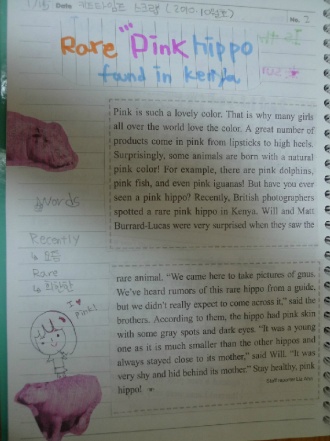 Date
No. 1
Rare Pink hippo
found in kenya
Pink is such a lovely color. That is why many girls
all over the world love the color. A great number of
products come in pink from lipsticks to high heels.
Surprisingly, some animals are born with a natural
pink color! For example, there are pink dolphins,
pink fish, and even pink iguanas! But have you ever
seen a pink hippo? Recently, British photographers
spotted a rare pink hippo in Kenya. Will and Matt
Burrard-Lucas were very surprised when they saw the
words
Recently
↳ 요즘
Rare
↳ 희귀한
I ♥
pink!
rare animal. "We came here to take pictures of gnus.
We've heard rumors of this rare hippo from a guide,
but we didn't really expect to come across it," said the
brothers. According to them, the hippo had pink skin
with some gray spots and dark eyes. "It was a young
one as it is much smaller than the other hippos and
always stayed close to its mother," said Will. "It was
very shy and hid behind its mother." Stay healthy, pink
hippo!